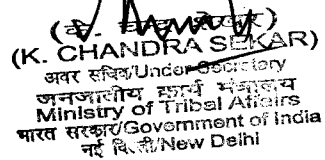 (के. चन्द्रा शेकर)
(K. CHANDRA SEKAR)
अवर सचिव/Under Secretary
जनजातीय कार्य मंत्रालय
Ministry of Tribal Affairs
भारत सरकार/Government of India
नई दिल्ली/New Delhi